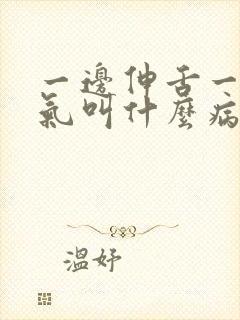 一邊伸舌一
氣叫什麼病
溫妤